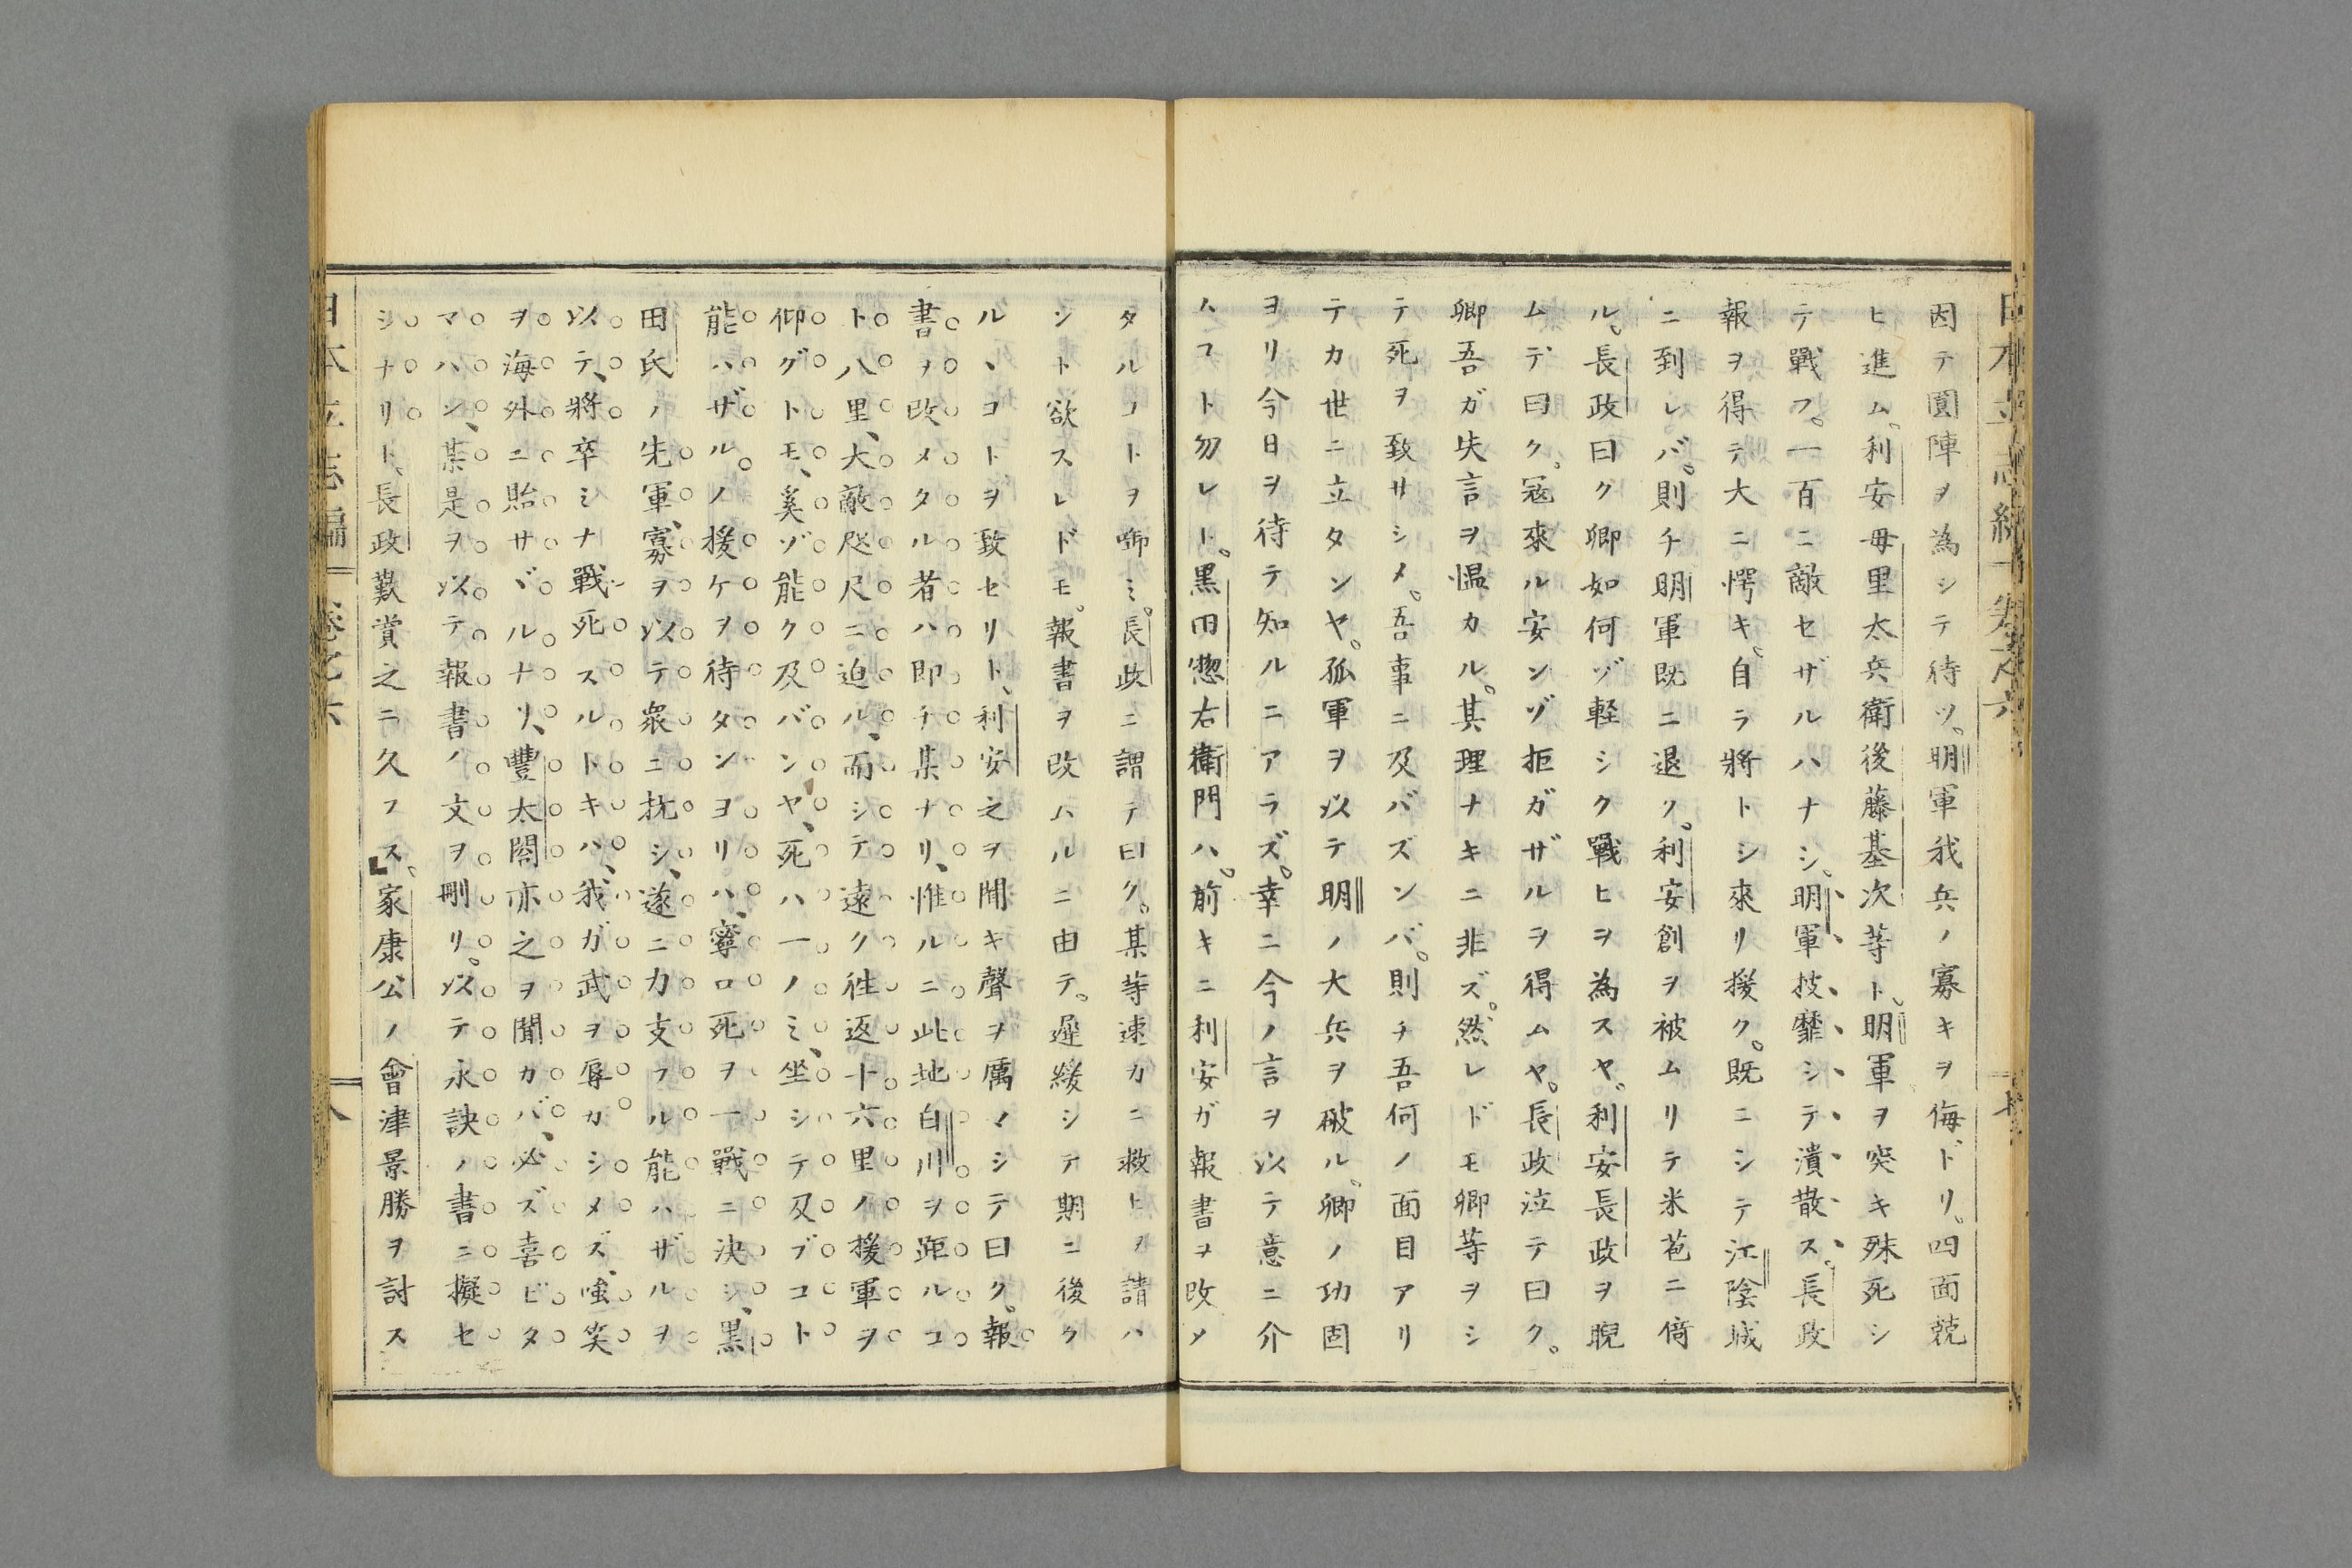 因テ圓陣ヲ為シテ待ツ。明軍我兵ノ寡キヲ侮ドリ。四面競
ヒ進ム。利安母里太兵衛後藤基次等ト。明軍ヲ突キ殊死シ
テ戰フ。一百ニ敵セザルハナシ。明軍披靡シテ潰散ス。長政
報ヲ得テ大ニ愕キ。自ラ將トシ來リ援ク。既ニシテ江陰城
ニ到レバ。則チ明軍既ニ退ク。利安創ヲ被ムリテ米苞ニ倚
ル。長政曰ク卿如何ゾ軽シク戰ヒヲ為スヤ。利安長政ヲ睨
ムデ曰ク。冦來ル安ンゾ拒ガザルヲ得ムヤ。長政泣テ曰ク。
卿吾ガ失言ヲ慍カル。其理ナキニ非ズ。然レドモ卿等ヲシ
テ死ヲ致サシメ。吾事ニ及バズンバ。則チ吾何ノ面目アリ
テカ世ニ立タンヤ。孤軍ヲ以テ明ノ大兵ヲ破ル。卿ノ功固
ヨリ今日ヲ待テ知ルニアラズ。幸ニ今ノ言ヲ以テ意ニ介
ハコト勿レト。黒田惣右衛門ハ。前キニ利安ガ報書ヲ改メ
タルコトヲ啣ミ。長政ニ謂テ曰ク。某等速カニ救ヒヲ請ハ
シト欲スレドモ。報書ヲ改ムルニ由テ。遲緩シテ期ニ後ク
ルヽコトヲ致セリト、利安之ヲ聞キ聲ヲ厲マシテ曰ク。報
書ヲ改メタル者ハ即チ某ナリ、惟ルニ此地白川ヲ距ルコ
ト八里、大敵咫尺ニ迫ル、而シテ遠ク徃返十六里ノ援軍ヲ
仰グトモ、奚ゾ能ク及バンヤ、死ハ一ノミ、坐シテ及ブコト
能ハザルノ援ケヲ待タンヨリハ、寧ロ死ヲ一戰ニ決シ、黒
田氏ノ先軍、寡ヲ以テ衆ニ抗シ、遂ニ力支フル能ハザルヲ
以テ、將卒ミナ戰死スルトキハ、我ガ武ヲ辱カシメズ、嗤笑
ヲ海外ニ貽サヾルナリ、豐太閤亦之ヲ聞カバ、必ズ喜ビタ
マハン、某是ヲ以テ報書ノ文ヲ刪リ。以テ永訣ノ書ニ擬セ
シナリト。長政歎賞之ニ久フス。」家康公ノ會津景勝ヲ討ス
日本立志編 卷之六 八